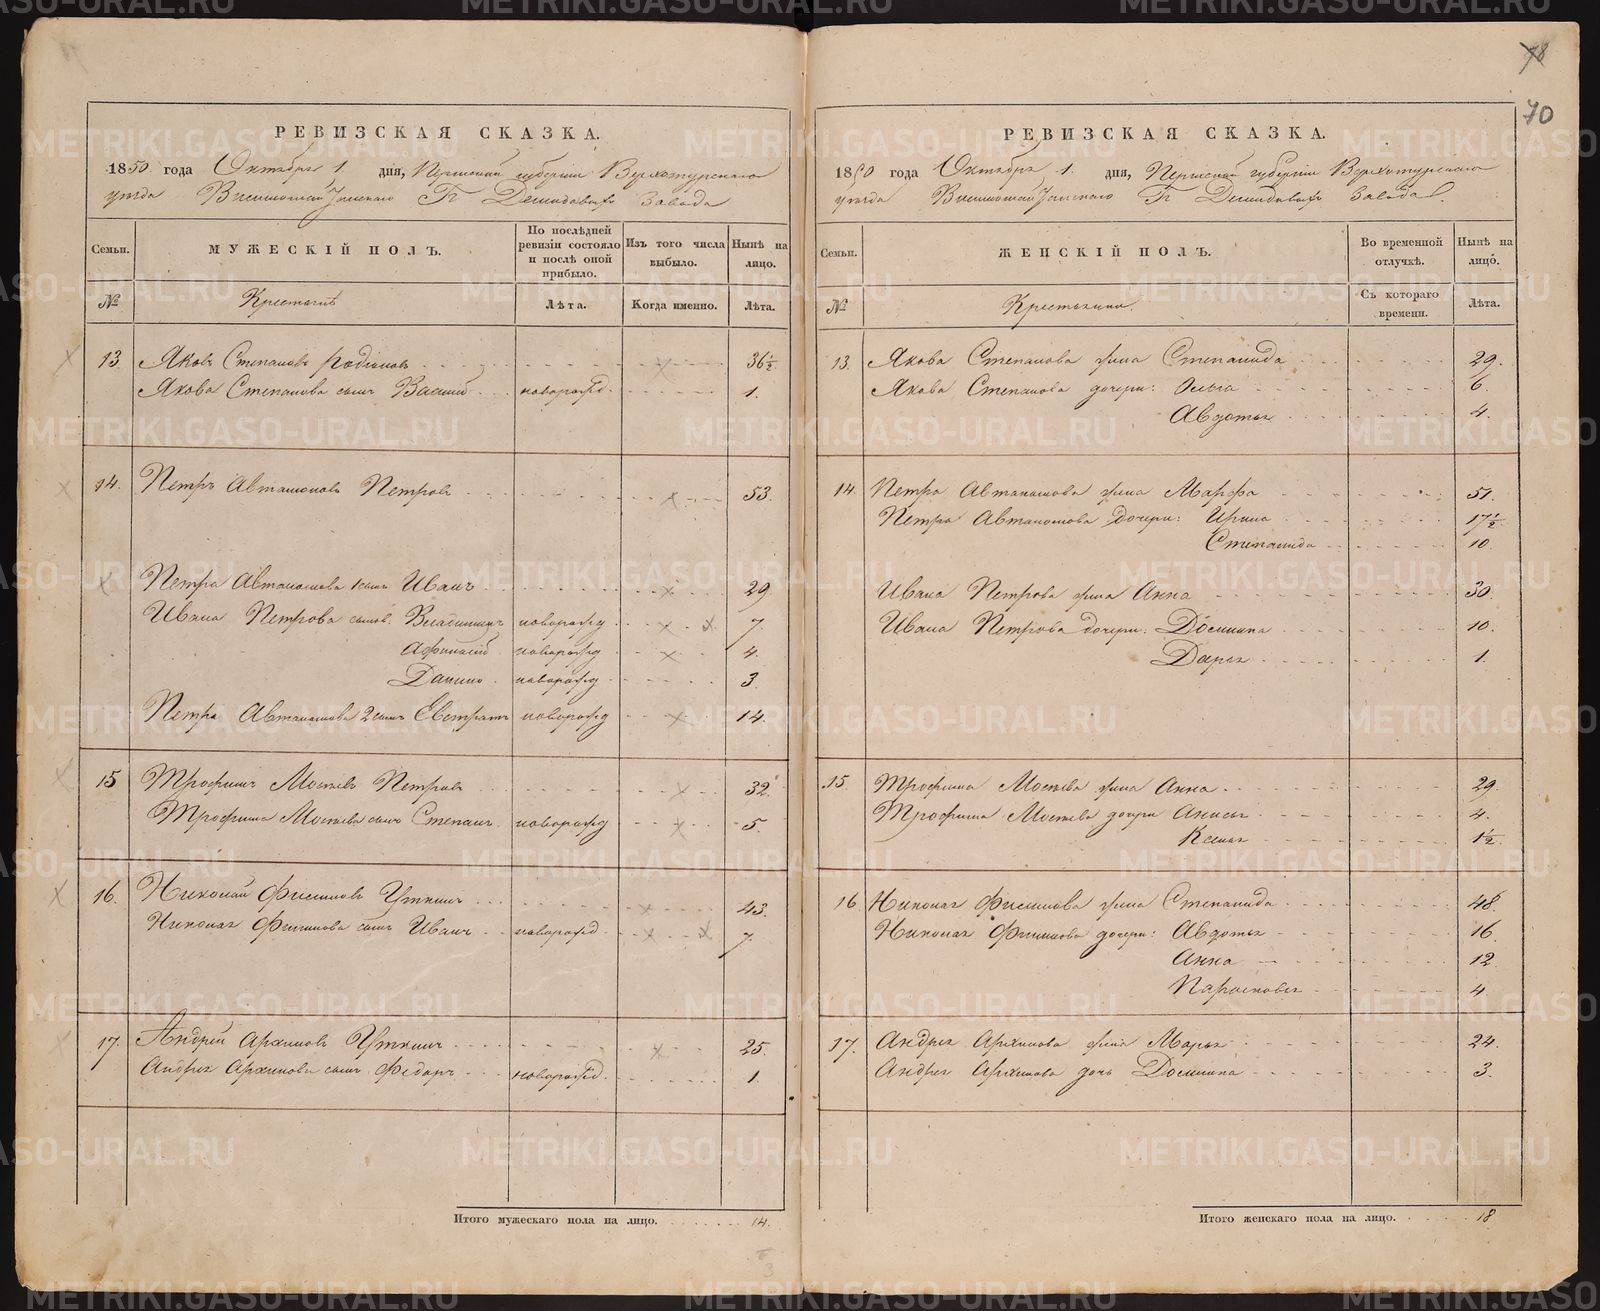 78
70
РЕВИЗСКАЯ СКАЗКА.
1850 года Октября 1 дня, Пермской губернии Верхотурского
уезда Висимошайтанского Гг Демидовых завода
Семьи.
МУЖЕСКІЙ ПОЛЪ.
По послѣдней ревизіи состояло и послѣ оной прибыло.
Изъ того числа выбыло.
Нынѣ на лицо.
№
Крестьяне
Лѣта.
Когда именно.
Лѣта.
13 Яковъ Степановъ Родіоновъ 36½
Якова Степанова сынъ Василій новорожд. 1.
14. Петръ Автамоновъ Петровъ 53.
Петра Автамонова 1 сынъ Иванъ 29
Ивана Петрова сынов. Владимиръ новорожд 7.
Афанасій новорожд 4.
Данило новорожд 3.
Петра Автамонова 2 сынъ Евстратъ новорожд 14.
15 Трофимъ Мосѣевъ Петровъ 32.
Трофима Мосѣева сынъ Степанъ новорожд 5.
16. Николай Филиповъ Уткинъ 43.
Николая Филипова сынъ Иванъ новорожд. 7.
17. Андрей Архиповъ Уткинъ 25.
Андрея Архипова сынъ Федоръ новорожд. 1.
Итого мужескаго пола на лицо. 14.
РЕВИЗСКАЯ СКАЗКА.
1850 года Октября 1. дня, Пермской губерніи Верхотурскаго
уезда Висимошайтанскаго Гг Демидовыхъ завода.
Семьи.
ЖЕНСКІЙ ПОЛЪ.
Во временной отлучкѣ.
Нынѣ на лицо.
№
Крестьянина.
Съ котораго времени.
Лѣта.
13. Якова Степанова жена Степанида 29.
Якова Степанова дочери: Ольга 6.
Авдотья 4.
14. Петра Автамонова жена Марфа 51.
Петра Автамонова дочери: Ирина 17½
Степанида 10.
Ивана Петрова жена Анна 30.
Ивана Петрова дочери: Домнина 10.
Дарья 1.
15. Трофима Мосѣева жена Анна 29.
Трофима Мосѣева дочери Анисья 4.
Ксенья 1½
16 Николая Филипова жена Степанида 48.
Николая Филипова дочери: Авдотья 16
Анна 12
Парасковья 4.
17. Андрея Архипова жена Марья 24.
Андрея Архипова дочь Домнина 3.
Итого женскаго пола на лицо. 18
METRIKI.GASO-URAL.RU